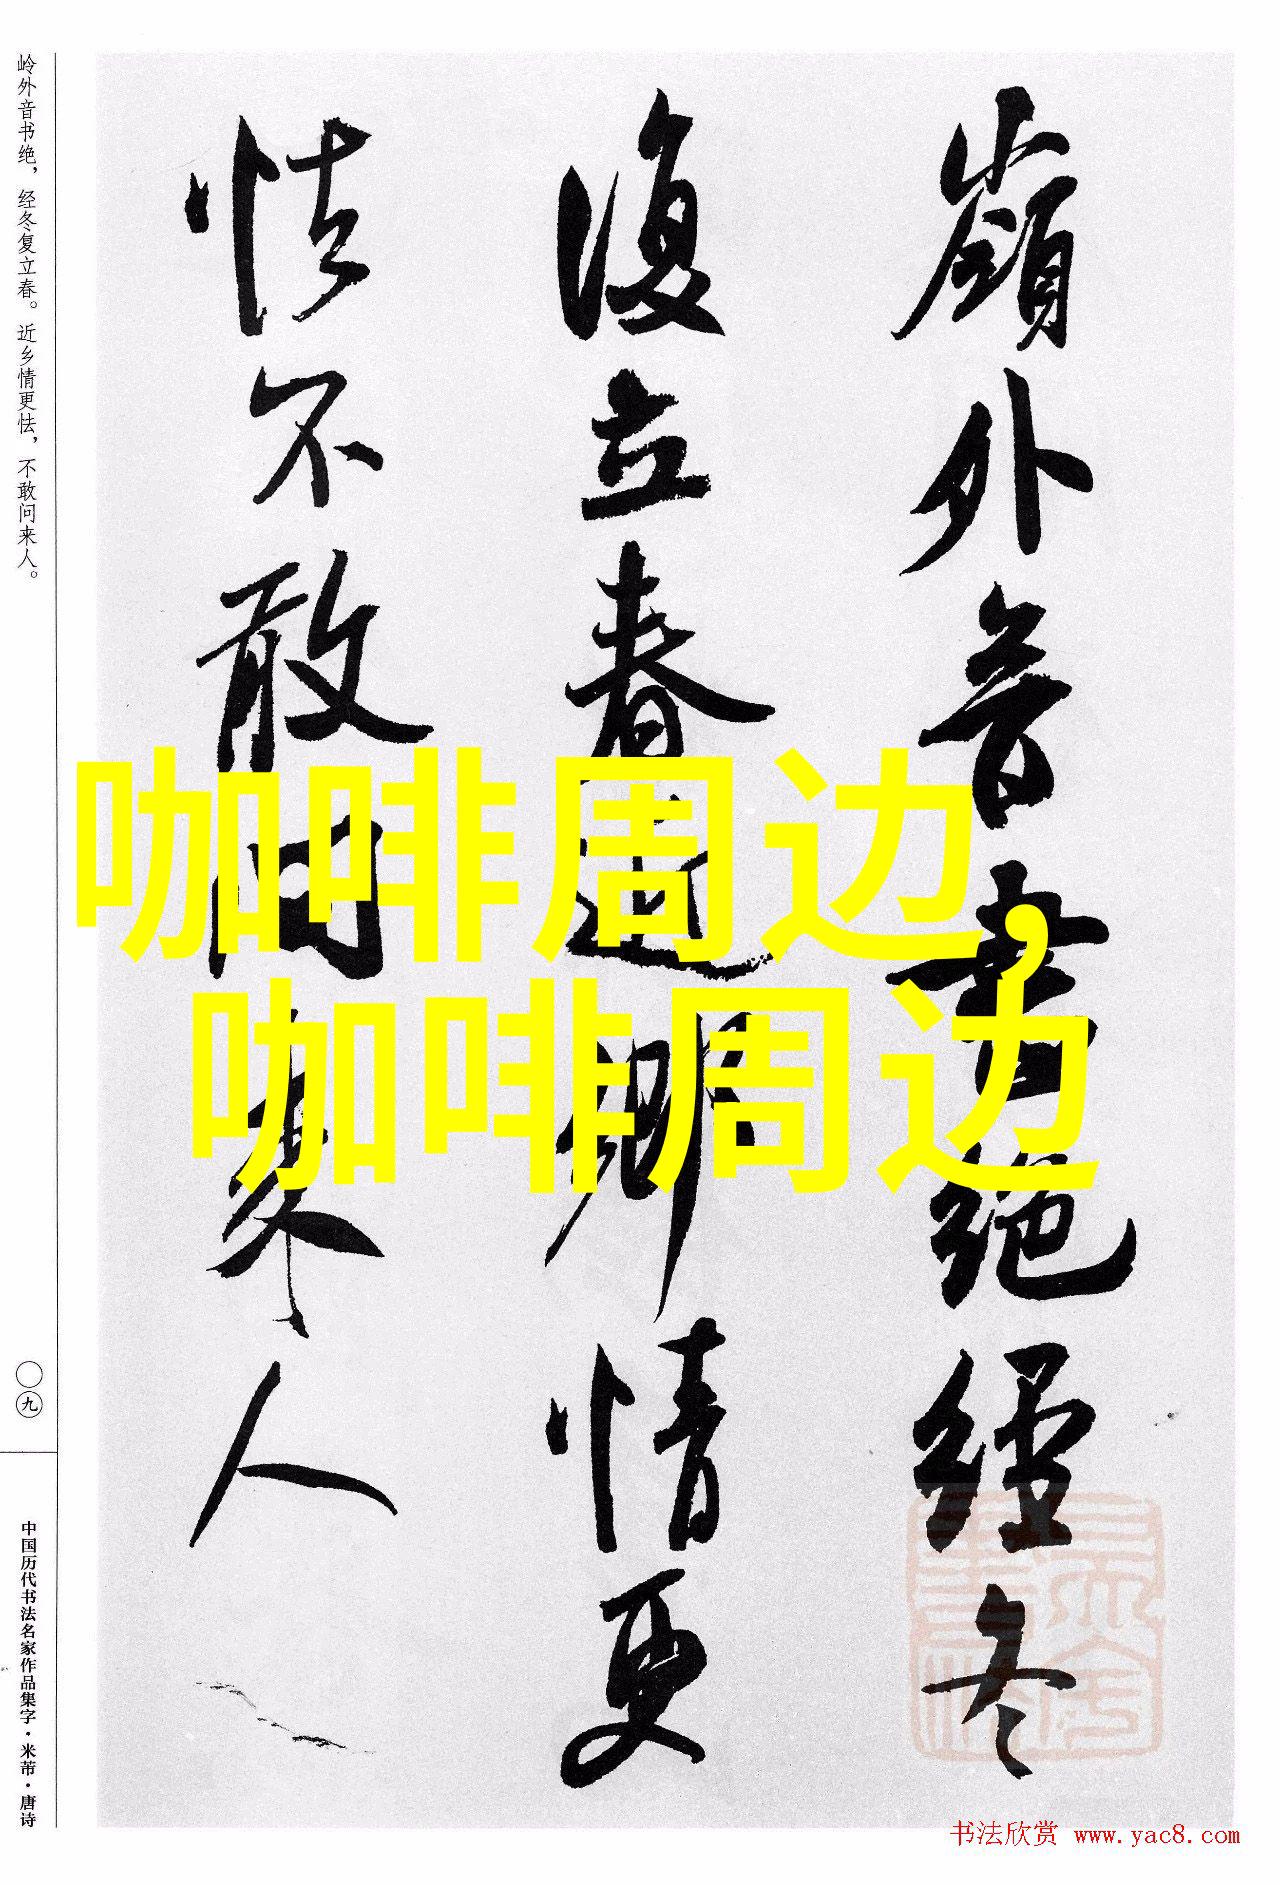 岭外音书绝，经冬复立春。近乡情更怯，不敢问来人。
〇九
中国历代书法名家作品集字·米芾·唐诗
嶺外音書絕經冬
復立春近鄉情更
怯不敢問來人
咖啡周边,
咖啡周边
书法欣赏 www.yac8.com